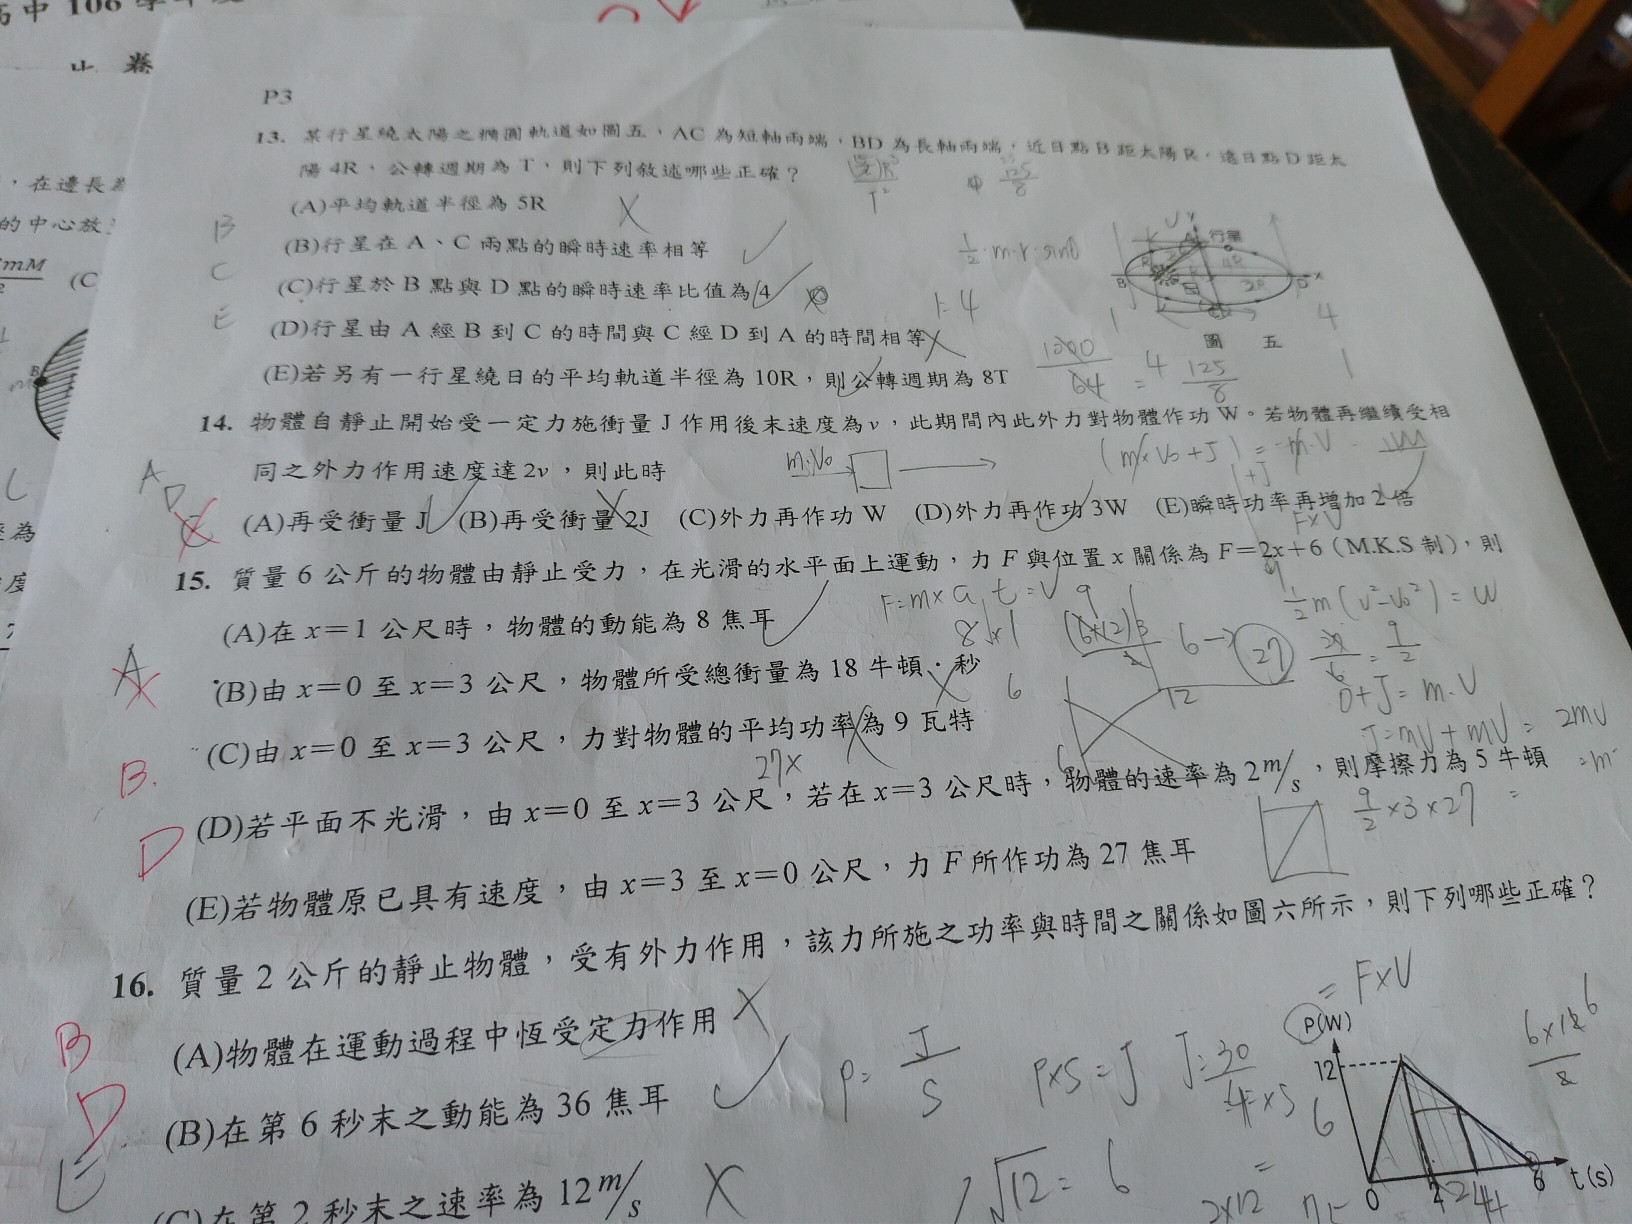 高中 106 學年度
卷
P3
13. 某行星繞太陽之橢圓軌道如圖五，AC 為短軸兩端，BD 為長軸兩端，近日點 B 距太陽 R，遠日點 D 距太
陽 4R，公轉週期為 T，則下列敘述哪些正確？
(A)平均軌道半徑為 5R
(B)行星在 A、C 兩點的瞬時速率相等
(C)行星於 B 點與 D 點的瞬時速率比值為 4
(D)行星由 A 經 B 到 C 的時間與 C 經 D 到 A 的時間相等
(E)若另有一行星繞日的平均軌道半徑為 10R，則公轉週期為 8T
行星
圖 五
B
C
E
1:4
½·m·r·sinθ
14. 物體自靜止開始受一定力施衝量 J 作用後末速度為 v，此期間內此外力對物體作功 W。若物體再繼續受相
同之外力作用速度達 2v，則此時
(A)再受衝量 J (B)再受衝量 2J (C)外力再作功 W (D)外力再作功 3W (E)瞬時功率再增加 2 倍
A
D
F×V
15. 質量 6 公斤的物體由靜止受力，在光滑的水平面上運動，力 F 與位置 x 關係為 F=2x+6（M.K.S 制），則
(A)在 x=1 公尺時，物體的動能為 8 焦耳
(B)由 x=0 至 x=3 公尺，物體所受總衝量為 18 牛頓．秒
(C)由 x=0 至 x=3 公尺，力對物體的平均功率為 9 瓦特
(D)若平面不光滑，由 x=0 至 x=3 公尺，若在 x=3 公尺時，物體的速率為 2 m/s，則摩擦力為 5 牛頓
(E)若物體原已具有速度，由 x=3 至 x=0 公尺，力 F 所作功為 27 焦耳
A
B.
D
F=m×a
½m(v²-v₀²)=W
6→27
0+J=m·V
J=mV+mV=2mV
9/2×3×27
16. 質量 2 公斤的靜止物體，受有外力作用，該力所施之功率與時間之關係如圖六所示，則下列哪些正確？
(A)物體在運動過程中恆受定力作用
(B)在第 6 秒末之動能為 36 焦耳
(C)在第 2 秒末之速率為 12 m/s
B
D
E
=F×V
P=J/S
P×S=J
√12=6
2×12
P(W)
12
6
0
6
t(s)